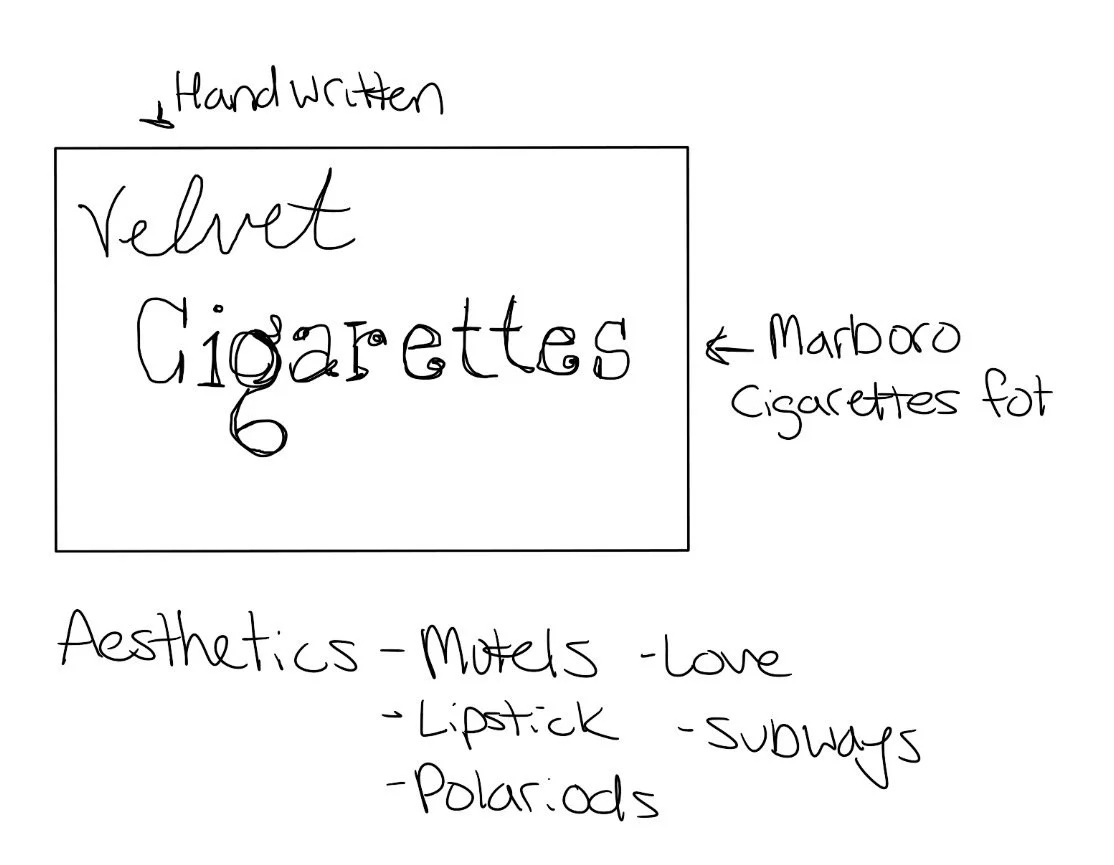 Handwritten
Velvet
Cigarettes
← Marboro
Cigarettes fot
Aesthetics - Motels - Love
- Lipstick - Subways
- Polariods